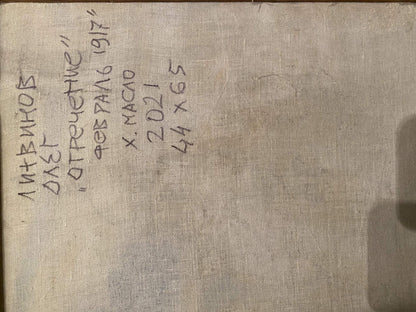 ЛИТВИНОВ
ОЛЕГ
„ОТРЕЧЕНИЕ"
ФЕВРАЛЬ 1917"
Х. МАСЛО
2021
44 х 65